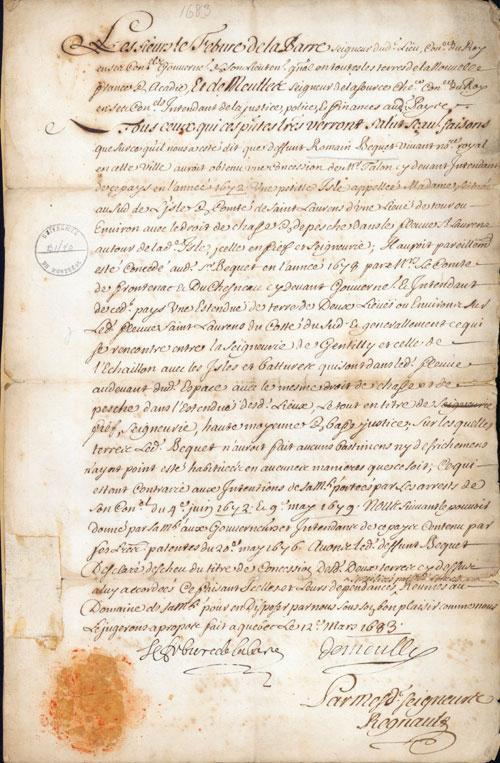 1683
Les sieurs le Febure de la Barre seigneur dud. Lieu, Con.er du Roy
en ses Con.lx Gouverne.r & son Lieuten.t gñal en toutes les terres de la Nouvelle
france & Acadie, Et de Meulles seigneur de la source Che.er Con.er Du Roy
en ses Con.ls Intendant de la justice, police, et finances aud. Pays.
A Tous ceux qui ces p.ntes l.res verront salut scau. faisons
que sur ce qu'il nous a esté dit que deffunt Romain Becquet vivant no.re royal
en cette ville auroit obtenu une concession de M.r Talon cy devant Intendant
de ce pays en l'année 1672 Une petitte Isle appellée Madame,
au sud de L'isle & Comté de Saint Laurens d'une Lieue de tour ou
Environ avec le droit de chasse & de pesche dans le fleuve S.t Laurens
autour de la d. Isle, jcelle en fief et seigneurie; Il auroit pareillem.t
esté Concedé aud. S.r Bequet en l'année 1678 par M.rs Le Comte
de frontenac & Du Chesneau cy devant Gouverne.r & Intendant
de ced. pays Une Estendue de terre de Deux Lieues ou Environ sur
Led. fleuve Saint Laurens du Costé du sud & generallement ce qui
se rencontre entre la seigneurie de Gentilly et celle de
l'Echaillon avec les Isles et batturer qui sont dans led. fleuve
au devant dud. Espace avec le mesme droit de chasse et de
pesche dans l'estendue desd. Lieux, Le tout en titre de seigneurie
fief, seigneurie, haute moyenne & basse justice, sur lesquelles
terres Led. Bequet n'auroit fait aucuns bastimens ny desfrichemens
n'ayant point esté habituées en aucune manieres que ce soit; Ce qui
estant Contraire aux Intentions de sa M.té portées par les arrests de
son Con.el du 4.e juin 1672 & 9.e may 1679. Nous suivant le pouvoir
donné par sa M.té aux Gouverneurs et Intendans de ce pays Contenu par
ses Lres patentes du 20.e may 1676 Avons led. deffunt Bequet
Desclaré descheu du titre de Concession desd. Deux terres cy dessus
a luy accordées Ce faisant Icelles et Leurs dependances, Reunies au
Domaine de sa M.té pour en Disposer par nous sous son bon plaisir comme nous
Le jugerons a propos fait a quebec Le 12.e Mars 1683.
Le Febure de la barre
demeulles
Par mesd. seigneurs
Regnault
UNIVERSITÉ
DE MONTRÉAL